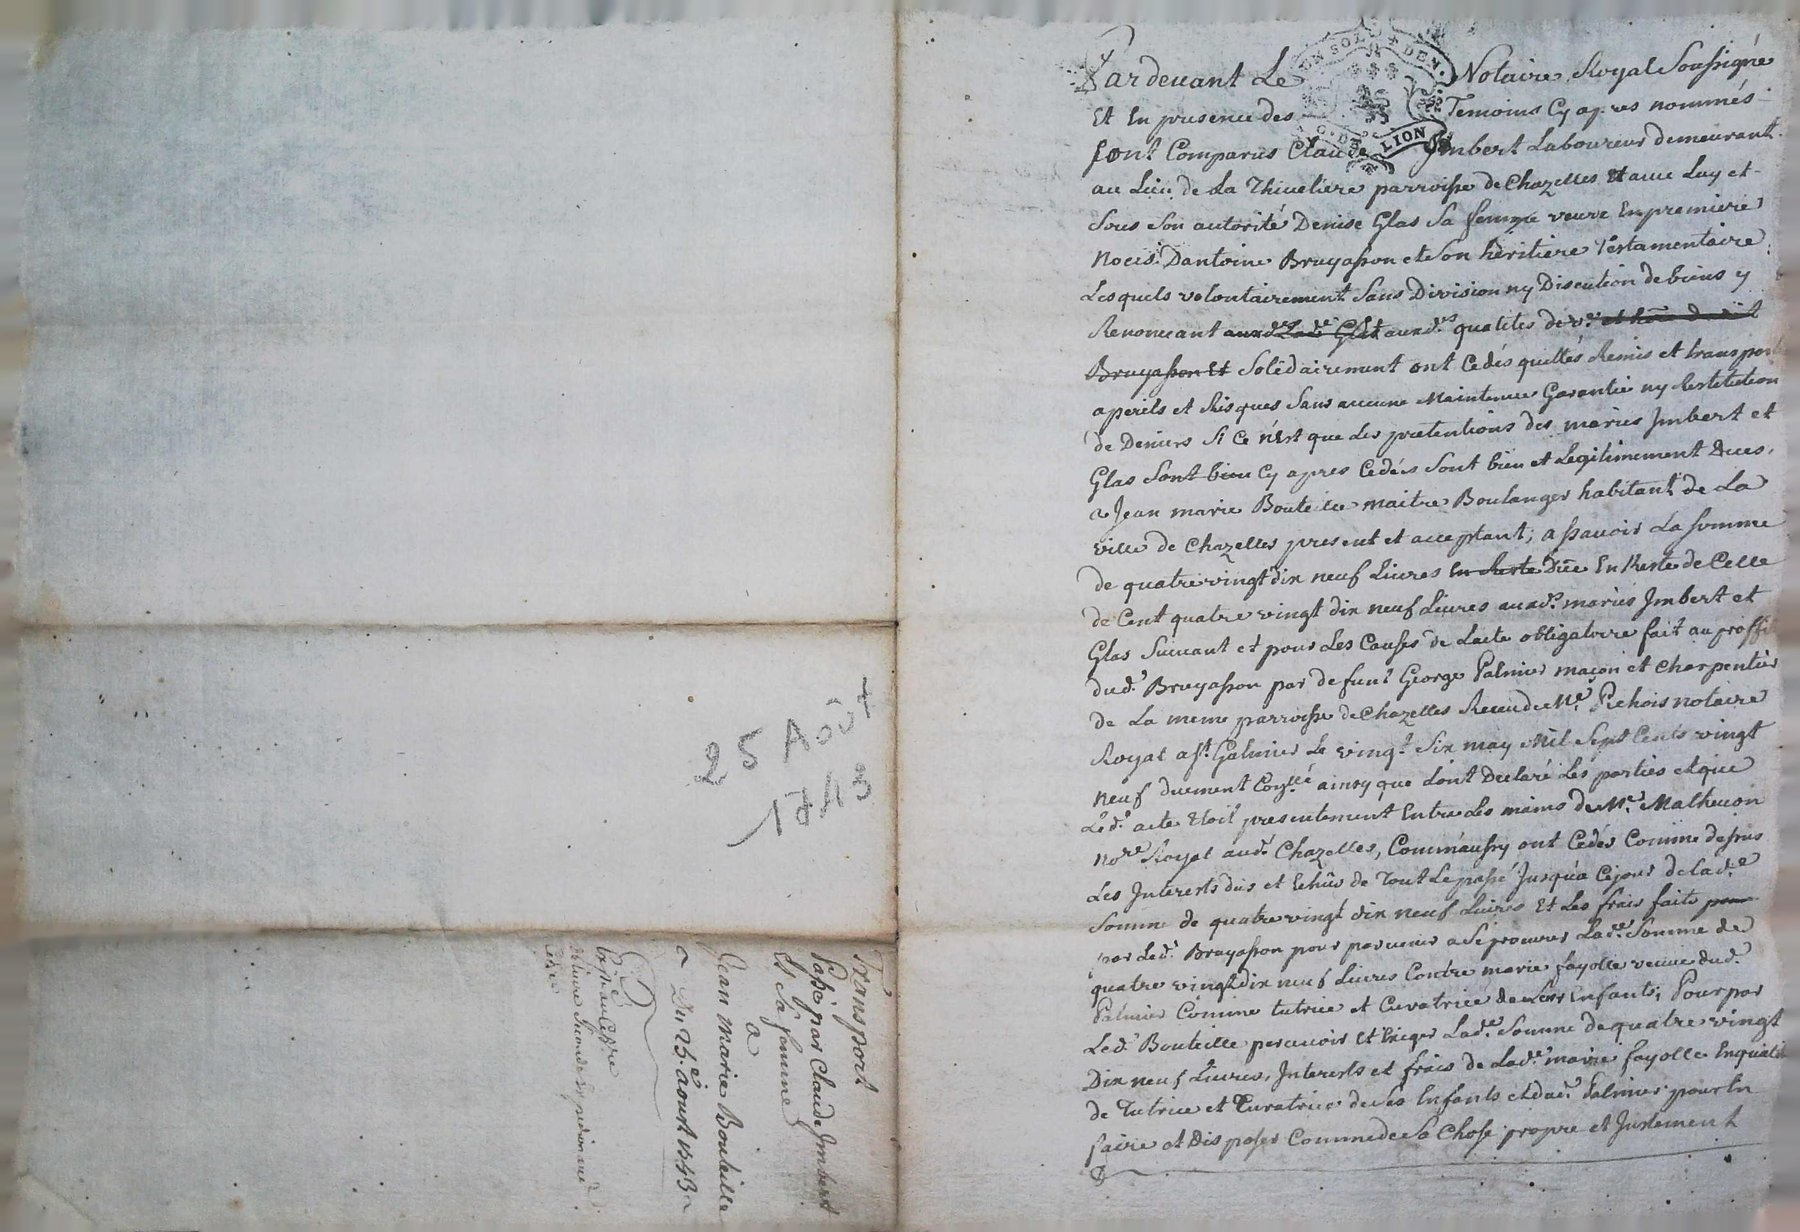 25 Aoû
1743
Transport
Passé par Claude Imbert
Et sa femme
a
Jean Marie Bouteille
Du 25.e aoust 1743
UN SOL DEN.
G. DE LION
Pardevant Le Notaire Royal Soussigné
Et En presence des Temoins Cy apres nommés
sont Comparus Claude Jmbert Laboureur demeurant
au Lieu de La Thiveliere parroisse de Chazelles Et avec Luy et
Sous Son autorité Denise Glas Sa femme veuve En premiere
Noces Dantoine Bruyasson et Son héritiere Testamentaire
Lesquels volontairement Sans Division ny Discution de biens y
Renoncant auxd.s qualités de v.e
Bruyasson Et Solidairement ont Cedés quittés Remis et transporté
a perils et Risques Sans aucune Maintenue Garantie ny Restitution
de Deniers Si Ce n'Est que Les pretentions des mariés Jmbert et
Glas Sont bien Cy apres Cedées Sont bien et Legitimement Dues,
a Jean marie Bouteille maitre Boulanger habitant de La
ville de Chazelles present et acceptant; a sçavoir La somme
de quatre vingt dix neuf Livres En Reste Düe En Reste de Celle
de Cent quatre vingt dix neuf Livres auxd.s mariés Jmbert et
Glas Suivant et pour Les Causes de Lacte obligatoire fait au proffit
dud.t Bruyasson par defunt George Palmier maçon et Charpentier
de La meme parroisse de Chazelles Receu de M.e Pichois notaire
Royal a S.t Galmier Le vingt Six may Mil Sept Cents vingt
neuf duement Con.llé ainsy que Lont Declaré Les parties et que
Led.t acte Etoit presentement Entre Les mains de M.e Mathevon
no.re Royal aud.t Chazelles, Comm'aussy ont Cedés Comme dessus
Les Interests dus et Echûs de Tout Le passé Jusqu'a Cejour de Lad.e
Somme de quatre vingt dix neuf Livres Et Les frais faits pour
par Led.t Bruyasson pour parvenir a Se procurer Lad.e Somme de
quatre vingt dix neuf Livres Contre marie fayolle veuve dud.t
Palmier Comme tutrice et Curatrice de Leurs Enfants; Pour par
Led.t Bouteille percevoir Et Exiger Lad.e Somme de quatre vingt
Dix neuf Livres, Interests et frais de Lad.e marie fayolle En qualité
de Tutrice et Curatrice de Ses Enfants et dud.t Palmier pour En
faire et Disposer Comme de Sa Chose propre et Justement